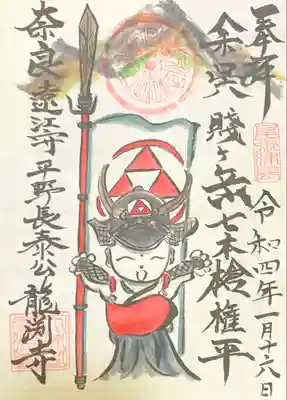 奉拝
余呉 賤ヶ岳七本槍 権平
令和四年一月十六日
奈良 遠江守 平野長泰公 龍渕寺